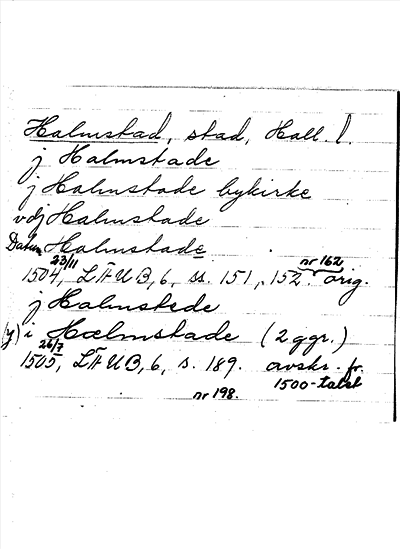 Halmstad, stad, Hall. l.
j Halmstade
j Halmstade bykirke
vdj Halmstade
Datum Halmstade
1504, 23/11 LÄUB, 6, ss. 151, 152. nr 162 orig.
j Halmstede
(y) i Hælmstade (2 ggr.)
1505, 26/7 LÄUB, 6, s. 189. avskr. fr.
nr 198. 1500-talet